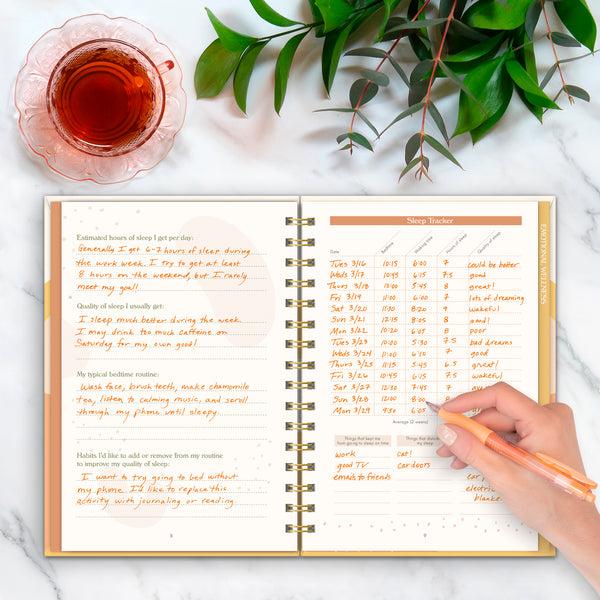 Estimated hours of sleep I get per day:
Generally I get 6-7 hours of sleep during
the work week. I try to get at least
8 hours on the weekend, but I rarely
meet my goal!
Quality of sleep I usually get:
I sleep much better during the week.
I may drink too much caffeine on
Saturday for my own good!
My typical bedtime routine:
Wash face, brush teeth, make chamomile
tea, listen to calming music, and scroll
through my phone until sleepy.
Habits I'd like to add or remove from my routine
to improve my quality of sleep:
I want to try going to bed without
my phone. I'd like to replace this
activity with journaling or reading.
Sleep Tracker
Date Bedtime Waking time Hours of sleep Quality of sleep
Tues 3/16 10:15 6:00 7 could be better
Weds 3/17 10:45 6:15 7.5 good
Thurs 3/18 10:00 6:00 8 great!
Fri 3/19 6:00 7 lots of dreaming
Sat 3/20 11:30 8:20 9 wakeful
Sun 3/21 12:15 8:05 8
Mon 3/22 10:20 6:05 8 poor
Tues 3/23 10:00 5:30 7.5 bad dreams
Weds 3/24 11:00 6:30 7 good
Thurs 3/25 11:15 5:45 6.5 great!
Fri 3/26 10:45 6:15 7.5 wakeful
Sat 3/27 12:30 7:45
Sun 3/28 11:00 8:00
Mon 3/29 9:30 6:05
Average (2 weeks)
Things that kept me
from going to sleep on time
work
good TV
emails to friends
Things that
cat!
car doors
blanke
EMOTIONAL WELLNESS